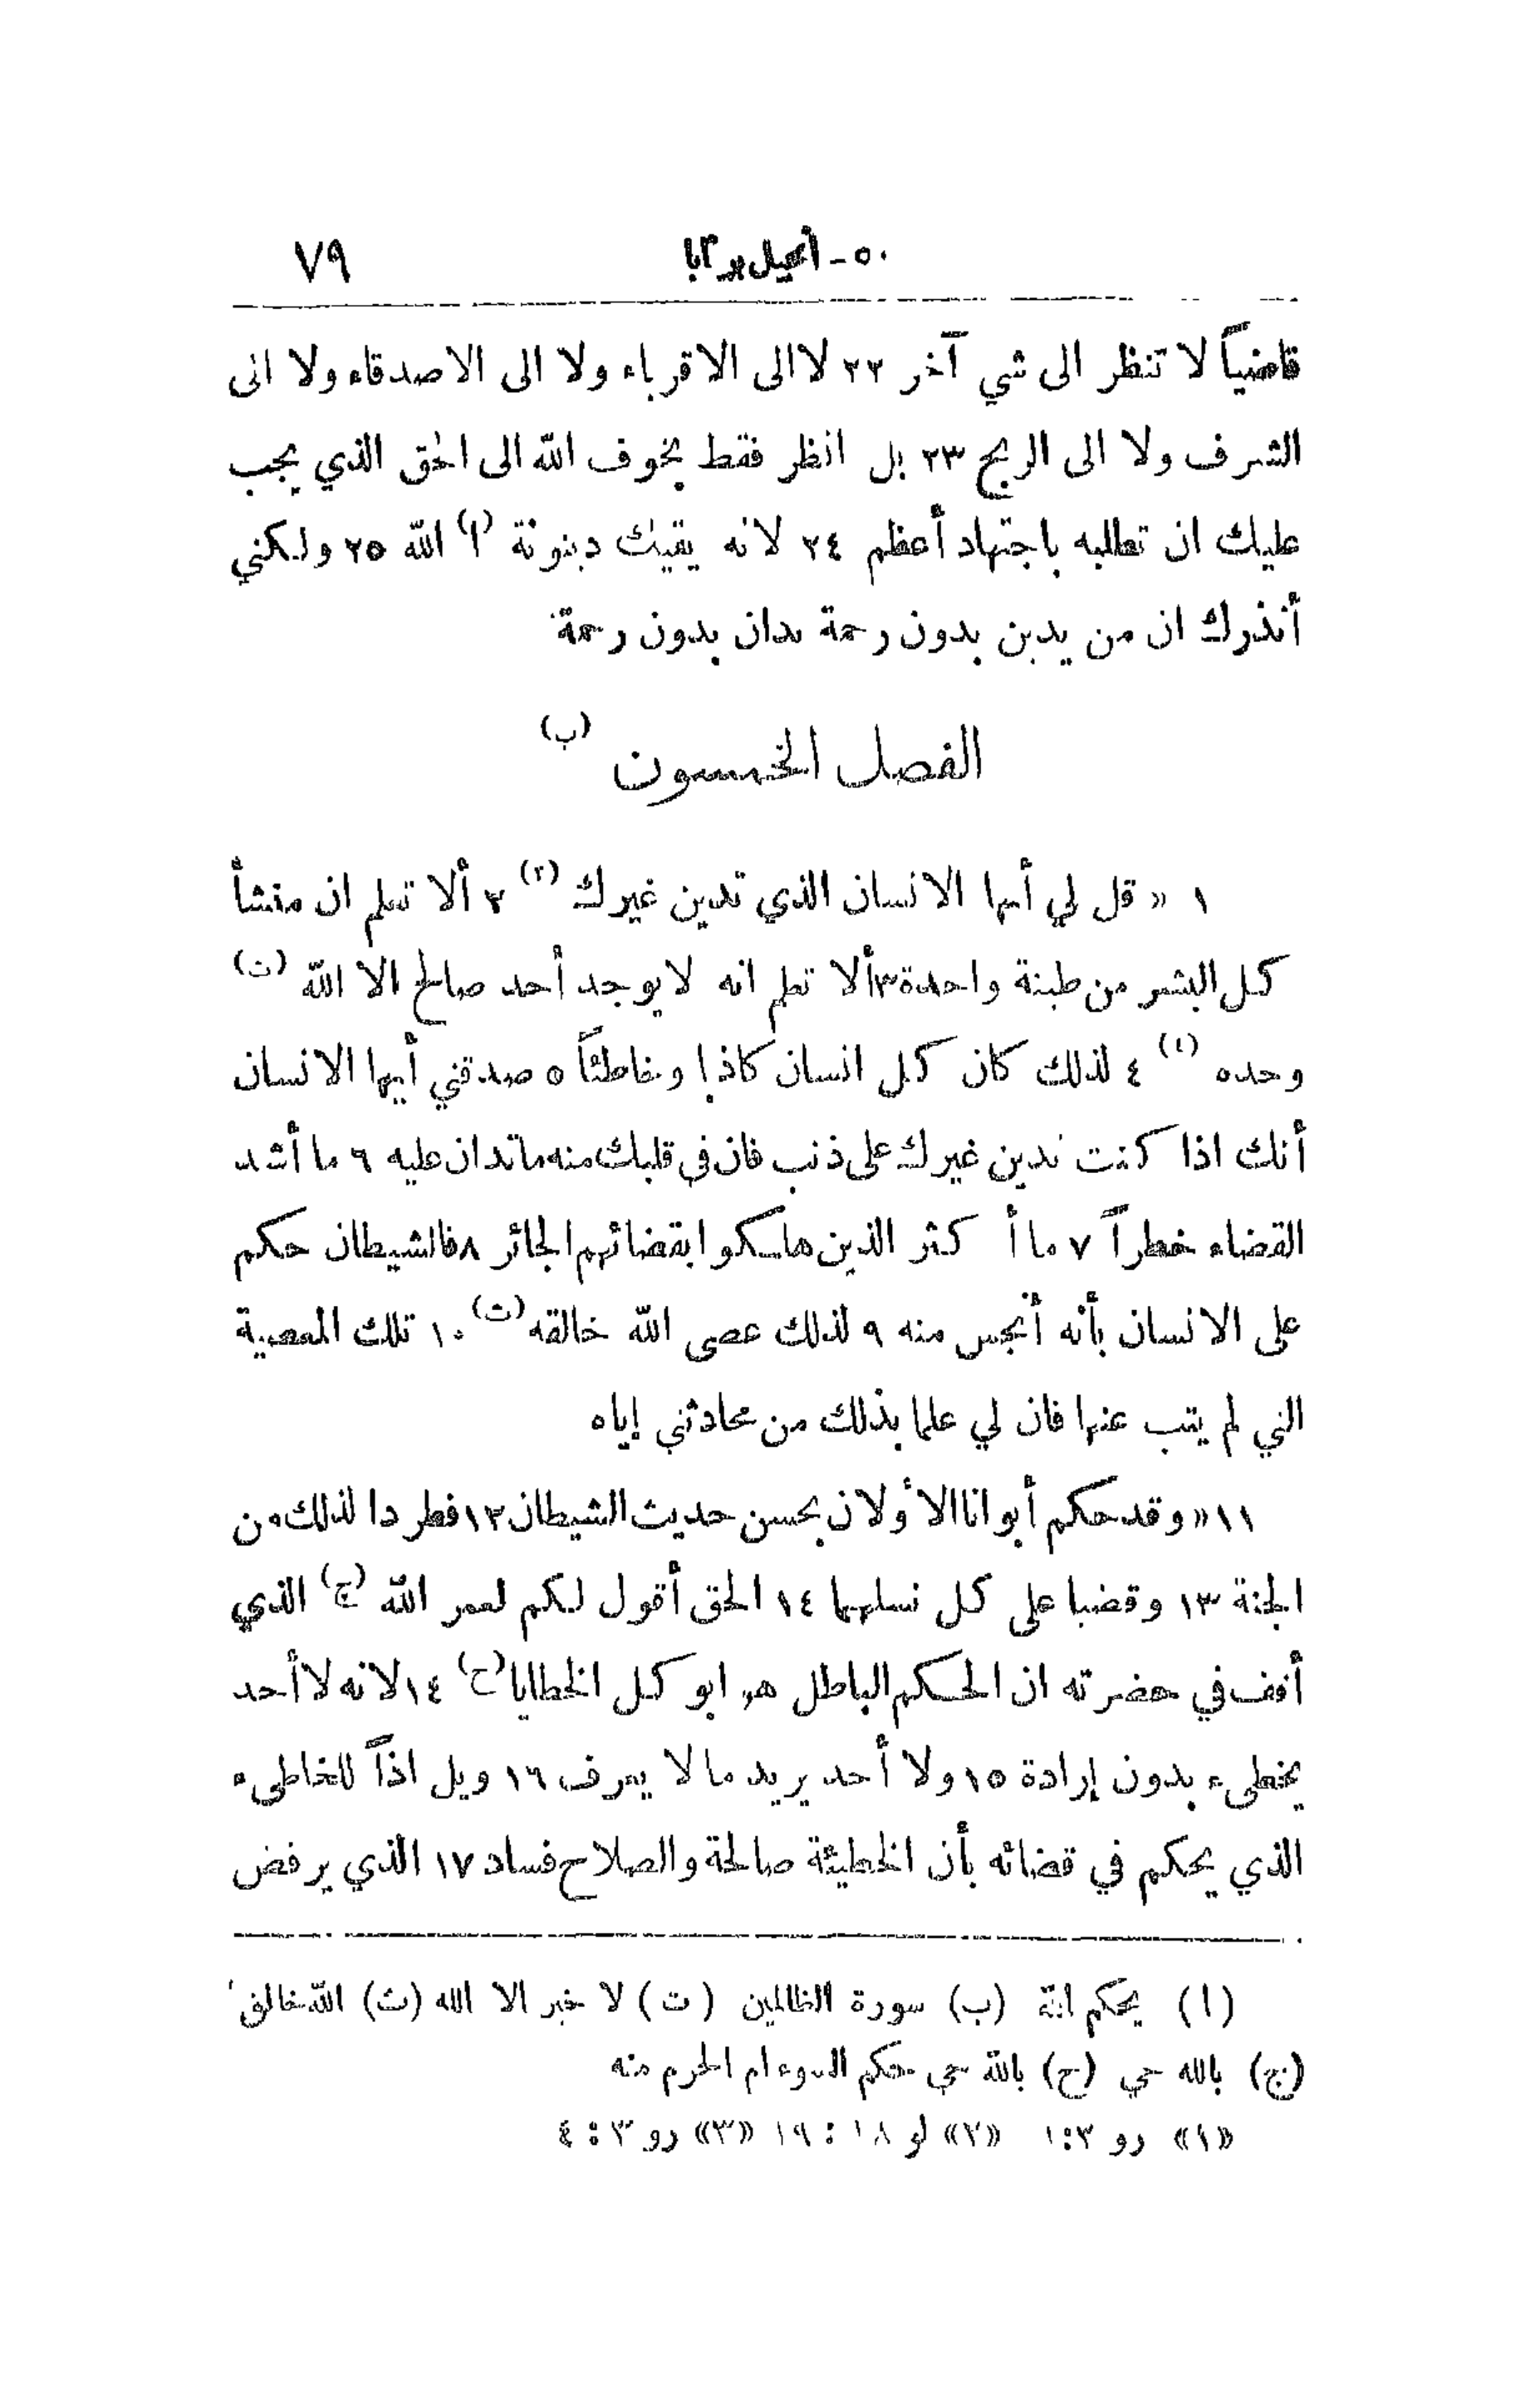 ٥٠ - أنجيل برنابا ٧٩
قاضياً لا تنظر الى شي آخر ٢٢ لا الى الاقرباء ولا الى الاصدقاء ولا الى
الشرف ولا الى الربح ٢٣ بل انظر فقط بخوف الله الى الحق الذي يجب
عليك ان تطلبه باجتهاد أعظم ٢٤ لانه يقيك دينونة (ا) الله ٢٥ ولكني
أنذرك ان من يدين بدون رحمة يدان بدون رحمة
الفصل الخمسون (ب)
١ « قل لي أيها الانسان الذي تدين غيرك (٢) ٢ ألا تعلم ان منشأ
كل البشر من طينة واحدة ٣ ألا تعلم انه لا يوجد أحد صالح الا الله (ت)
وحده (١) ٤ لذلك كان كل انسان كاذبا وخاطئاً ٥ صدقني أيها الانسان
أنك اذا كنت تدين غيرك على ذنب فان في قلبك منه ما تدان عليه ٦ ما أشد
القضاء خطراً ٧ ما أكثر الذين هلكوا بقضائهم الجائر ٨ فالشيطان حكم
على الانسان بأنه أنجس منه ٩ لذلك عصى الله خالقه (ث) ١٠ تلك المعصية
التي لم يتب عنها فان لي علما بذلك من محادثتي إياه
١١ « وقد حكم أبوانا الأولان بحسن حديث الشيطان ١٢ فطردا لذلك من
الجنة ١٣ وقضيا على كل نسلهما ١٤ الحق أقول لكم لعمر الله (ج) الذي
أقف في حضرته ان الحكم الباطل هو ابو كل الخطايا (ح) ١٤ لانه لا أحد
يخطىء بدون إرادة ١٥ ولا أحد يريد ما لا يعرف ١٦ ويل اذاً للخاطىء
الذي يحكم في قضائه بأن الخطيئة صالحة والصلاح فساد ١٧ الذي يرفض
(ا) يحكم الله (ب) سورة الظالمين (ت) لا خير الا الله (ث) الله خالق
(ج) بالله حي (ح) بالله حي حكم السوء ام الحرم منه
«١» رو ٢:١ «٢» لو ١٨ : ١٩ «٣» رو ٣ : ٤